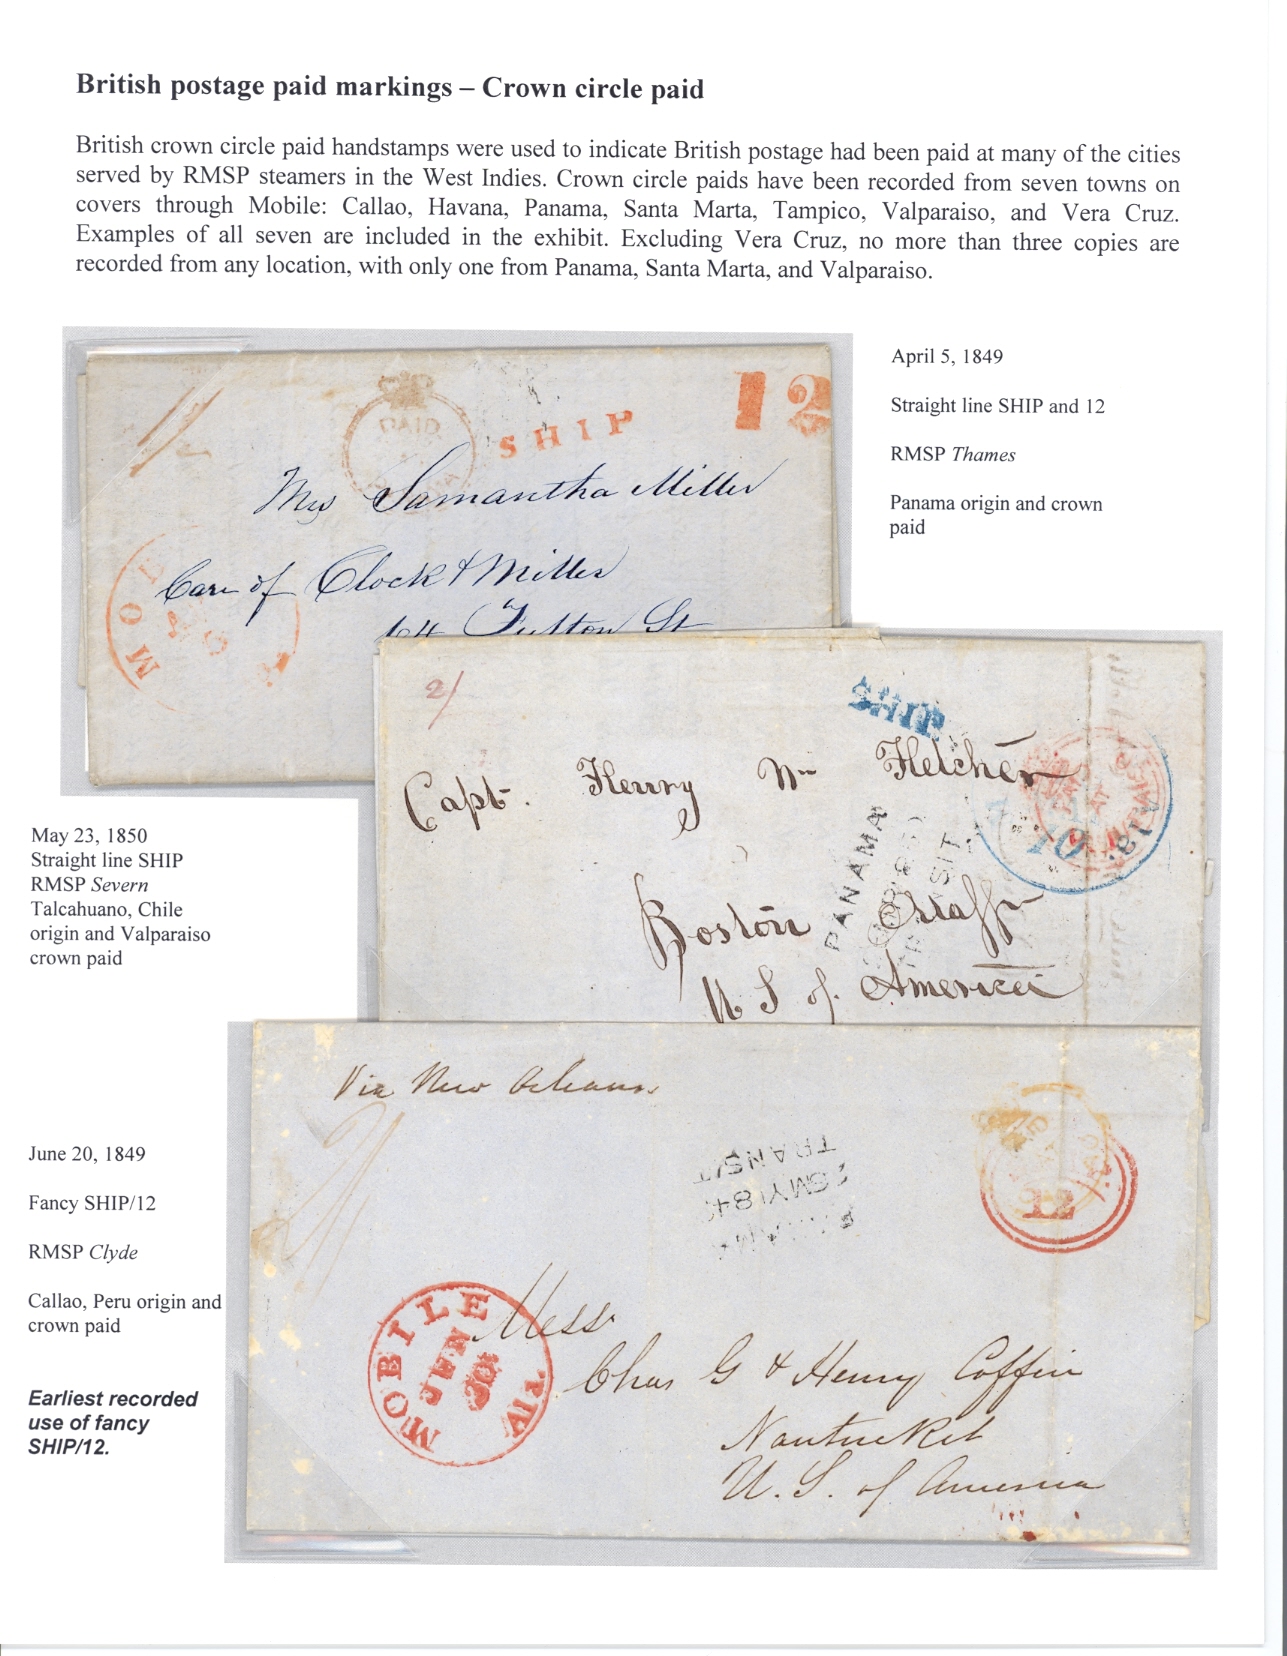 British postage paid markings – Crown circle paid
British crown circle paid handstamps were used to indicate British postage had been paid at many of the cities
served by RMSP steamers in the West Indies. Crown circle paids have been recorded from seven towns on
covers through Mobile: Callao, Havana, Panama, Santa Marta, Tampico, Valparaiso, and Vera Cruz.
Examples of all seven are included in the exhibit. Excluding Vera Cruz, no more than three copies are
recorded from any location, with only one from Panama, Santa Marta, and Valparaiso.
April 5, 1849
Straight line SHIP and 12
RMSP Thames
Panama origin and crown
paid
PAID
SHIP
12
Samantha Miller
Care of Clock & Miller
64 Fulton St
MOB
May 23, 1850
Straight line SHIP
RMSP Severn
Talcahuano, Chile
origin and Valparaiso
crown paid
2/
SHIP
Capt. Henry Wm Fletcher
10
PANAMA
Boston
U S of America
June 20, 1849
Fancy SHIP/12
RMSP Clyde
Callao, Peru origin and
crown paid
Earliest recorded
use of fancy
SHIP/12.
Via New Orleans
TRANSIT
12
MOBILE Ala.
JUN
Mess
Chas G & Henry Coffin
Nantucket
U. S. of America